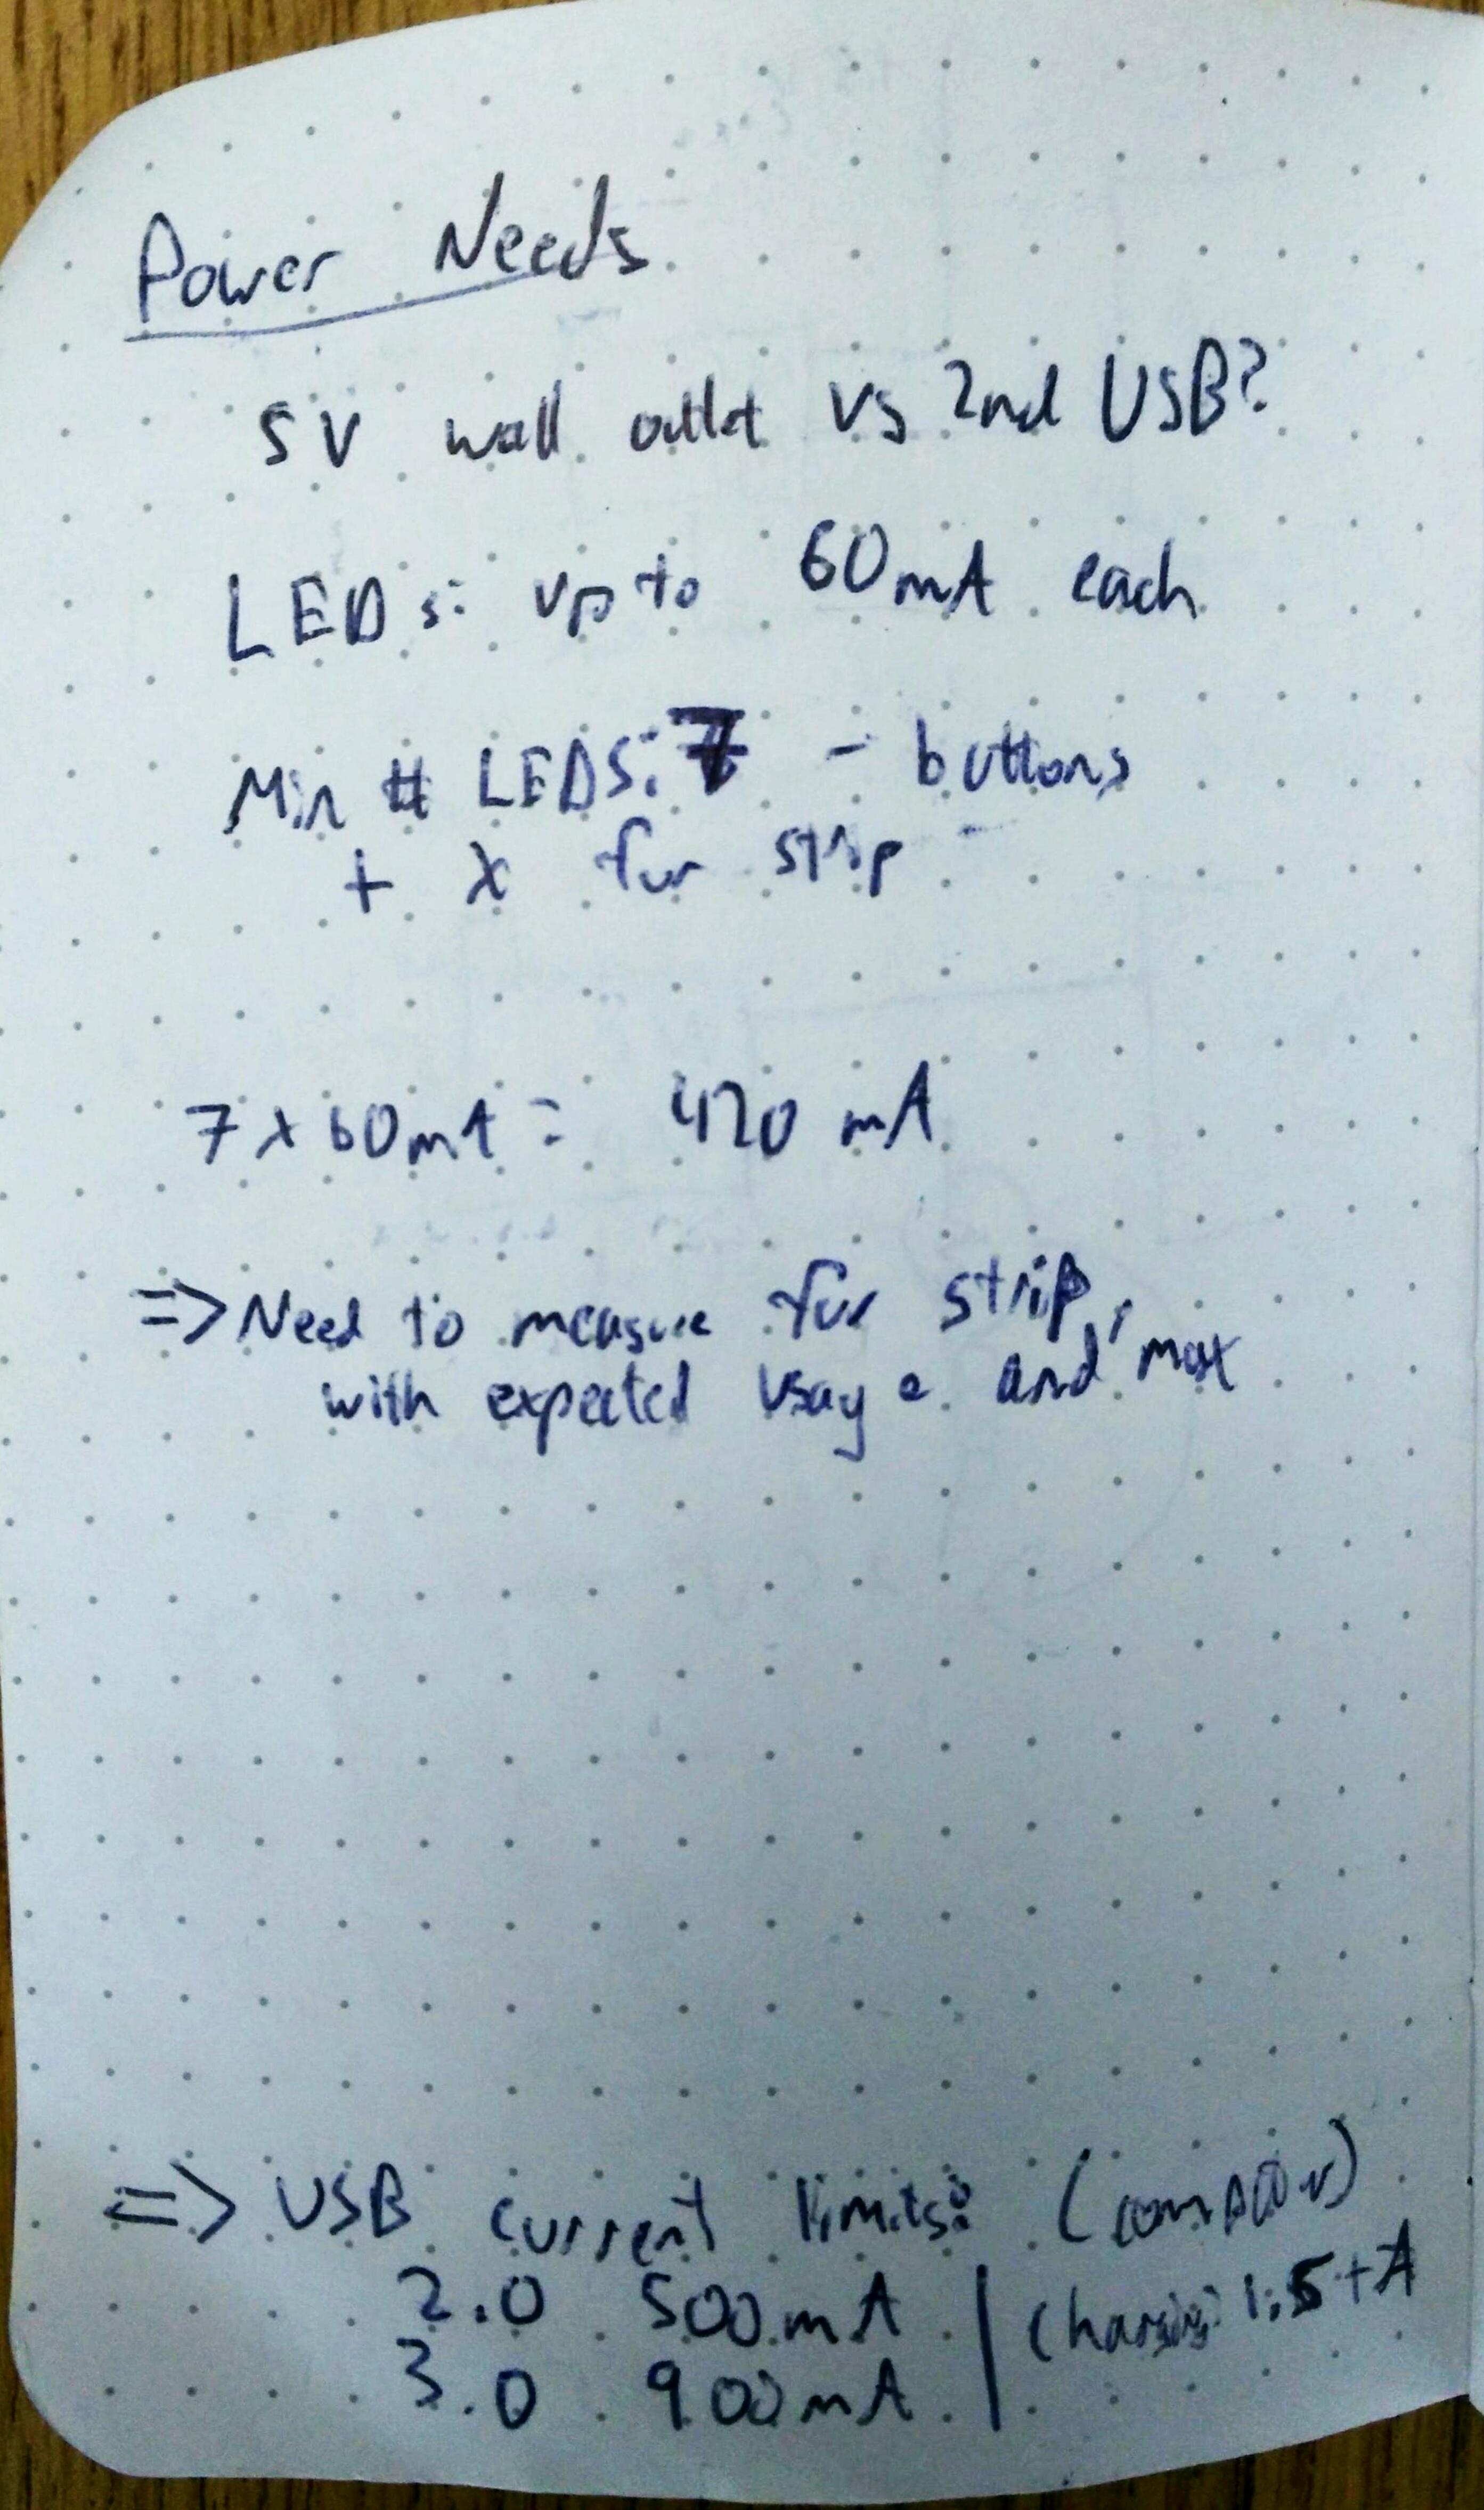 Power Needs
5V wall outlet vs 2nd USB?
LEDs: up to 60mA each
Min # LEDS: 7 - buttons
+ x for strip
7 x 60mA = 420 mA
=> Need to measure for strip,
with expected usage and max
=> USB current limits: (computer)
2.0 500mA | Charging: 1.5+A
3.0 900mA |